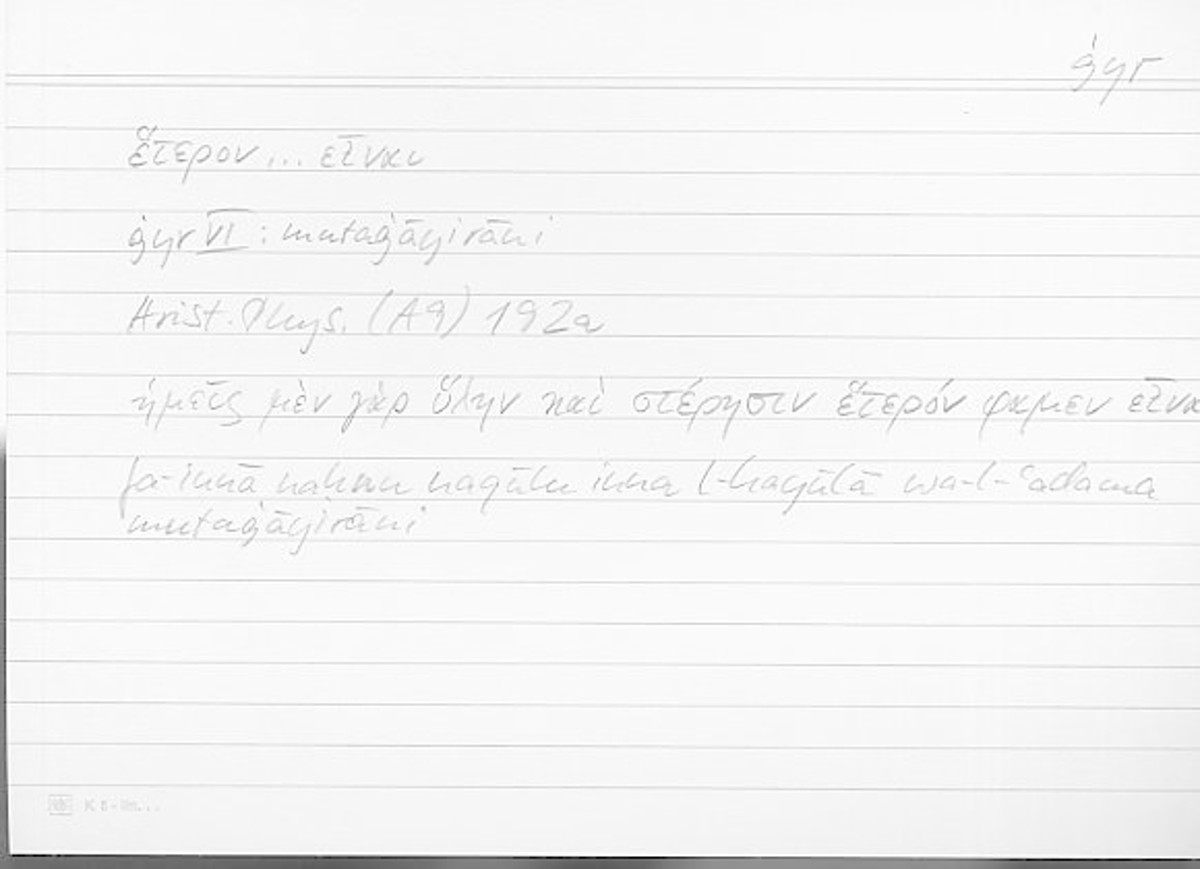 ġyr
ἕτερον ... εἶναι
ġyr VI : mutaġāyirāni
Arist. Phys. (A9) 192a
ἡμεῖς μὲν γὰρ ὕλην καὶ στέρησιν ἕτερόν φαμεν εἶνα
fa-innā naḥnu naqūlu inna l-hayūlā wa-l-ʿadama
mutaġāyirāni